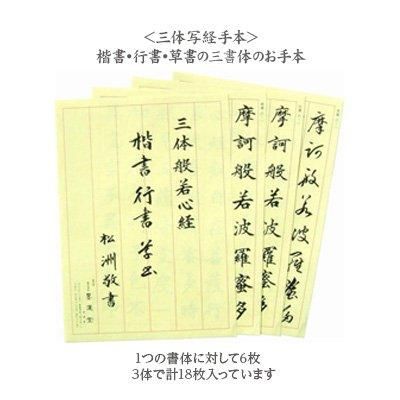 ＜三体写経手本＞
楷書・行書・草書の三書体のお手本
三体般若心経
楷書行書草書
松洲敬書
摩訶般若波羅蜜多
摩訶般若波羅蜜多
摩訶般若波羅蜜多
1つの書体に対して6枚
3体で計18枚入っています